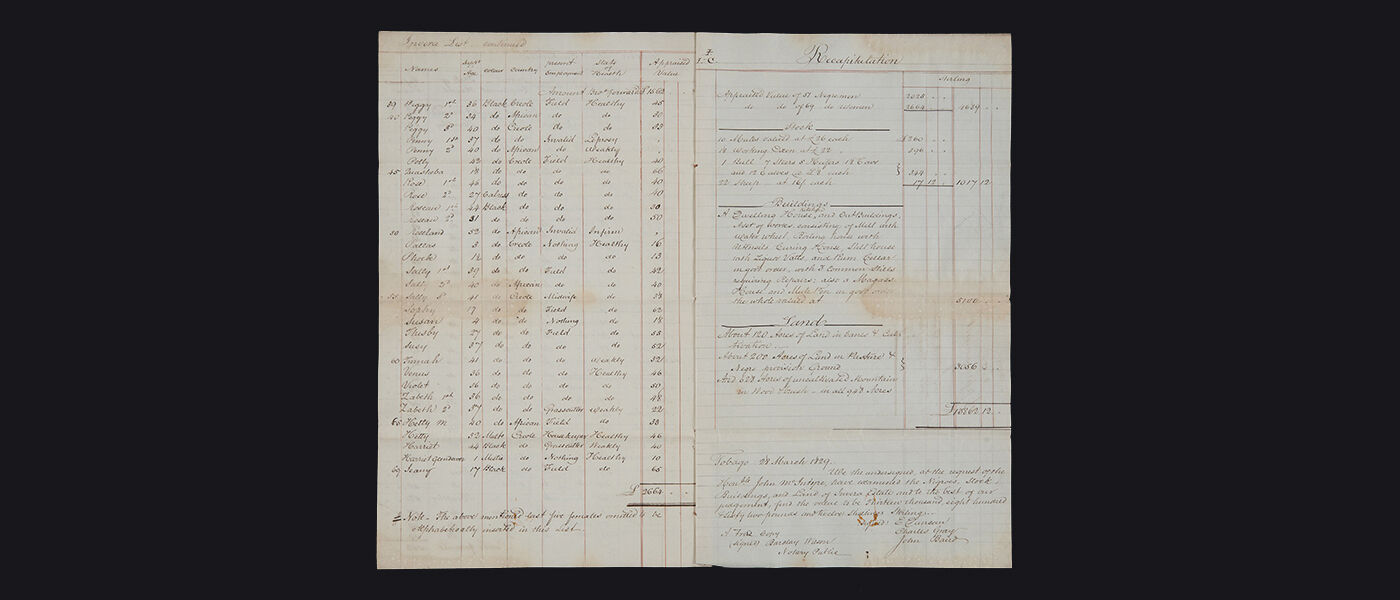 Invera List continued
Names Supp'd Age Colour Country present Employment State of Health Appraised Value
Amount Bro.t forward £ 1562
39 Peggy 1st 36 Black Creole Field Healthy 45
40 Peggy 2d 34 do African do do 50
Peggy 3d 40 do Creole do do 33
Penny 1st 37 do do Invalid Leprosy
Penny 2d 40 do African do Weakly
Polly 42 do Creole Field Healthy 40
45 Quashoba 18 do do do do 66
Rose 1st 46 do do do do 40
Rose 2d 27 do do do 40
Roseau 1st 44 Black do do do 30
Roseau 2d 31 do do do do 50
50 Roseland 52 do African Invalid Infirm
Dallas 3 do Creole Nothing Healthy 16
Phoebe 12 do do do do 13
Sally 1st 39 do do Field do 42
Sally 2d 40 do African do do 40
55 Sally 3d 41 do Creole Midwife do 38
Sophy 17 do do Field do 62
Susan 4 do do Nothing do 18
Thisby 27 do do Field do 55
Susy 37 do do do do 52
60 Timnah 41 do do do Weakly 32
Venus 36 do do do Healthy 46
Violet 36 do do do do 50
Zabeth 1st 36 do do do do 48
Zabeth 2d 57 do do Grasscutter Weakly 22
65 Hetty M 40 do African Field do 38
Hetty 32 Creole Housekeeper Healthy 46
Harriet 44 Black do Grasscutter Weakly 40
Harriet 1 do Nothing Healthy 10
69 Jeany 17 Black do Field do 65
£ 2664
Note The above mentioned last five females omitted to be
Alphabetically inserted in this List
Recapitulation
Sterling
Appraised Value of 51 Negromen 2025
do do of 69 do Women 2664 4689
Stock
10 Mules valued at £26 each £260
18 Working Oxen at £22 396
1 Bull 7 Steers 5 Heifers 18 Cows
and 12 Calves @ £8 each 344
22 Sheep at 16/ each 17 12 1017 12
Buildings
A Dwelling House, and Out Buildings,
A set of Works, consisting of Mill with
water wheel, Boiling house with
Utensils Curing House, Still house
with Liquor Vatts, and Rum Cellar
in good order, with 3 Common Stills
requiring Repairs; also a Magoss
House and Mule Pen in good order
the whole valued at 5100
Land
About 120 Acres of Land in Canes & Cul
tivation
About 200 Acres of Land in Pasture &
Negro provision Ground 3056
And 628 Acres of uncultivated Mountain
in Wood & Brush - in all 948 Acres
£13862 12
Tobago 28 March 1829.
We the undersigned, at the request of the
Honble John McIntyre, have examined the Negroes, Stock
Buildings, and Land of Invera Estate and to the best of our
judgement, find the value to be Thirteen thousand, eight hundred
& sixty two pounds and twelve Shillings Sterling.
Signed: E. Duncan
Charles Gray
John Baird
A True Copy
(signed) Barclay Wason
Notary Public